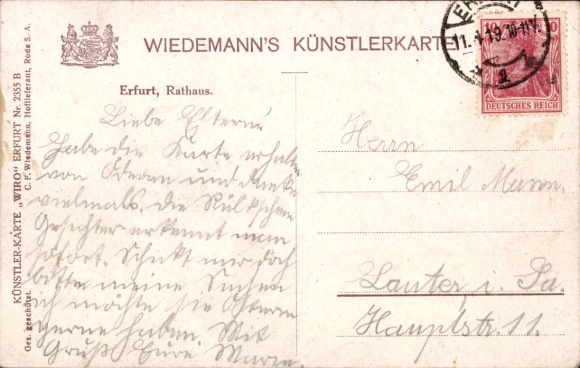 WIEDEMANN'S KÜNSTLERKARTE
Erfurt, Rathaus.
Liebe Eltern!
Habe die Karte erhalten
von und danke
vielmals. die
Gesichter erkennt man
sofort. Schikt mir doch
bitte meine Sachen
ich möchte sie Ostern
gerne haben. Mit
Gruß Eure
ERFURT
11.4.19.10-11V.
10 10
DEUTSCHES REICH
Herrn
Emil
Lauter i. Sa.
Hauptstr. 11.
KÜNSTLER-KARTE „WIRO“ ERFURT Nr. 2355 B
Ges. geschützt. C. F. Wiedemann, Hoflieferant, Roda S.-A.